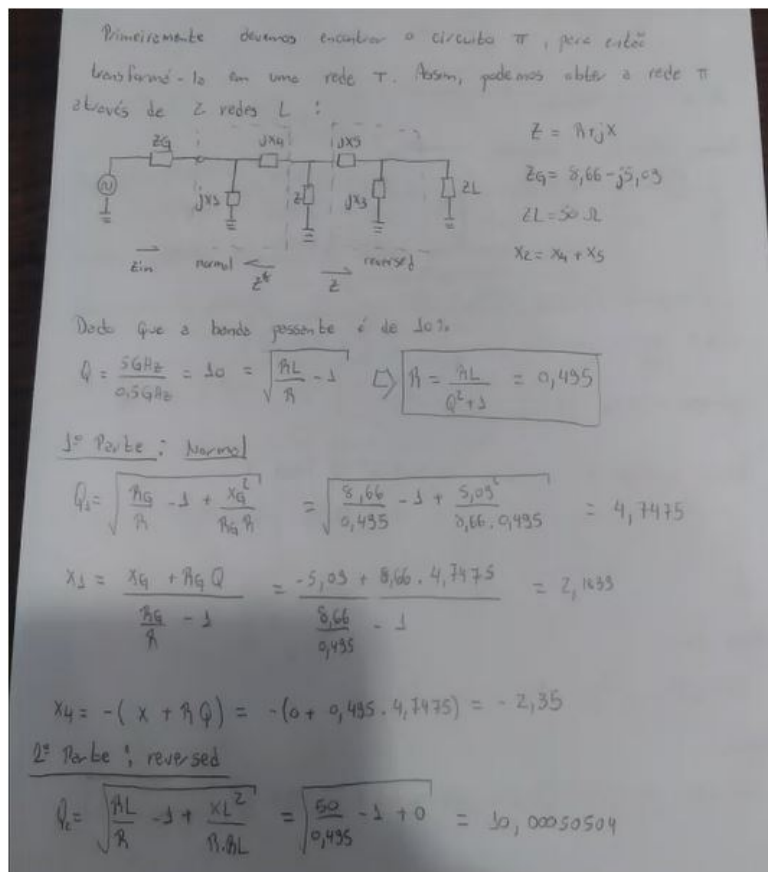 Primeiramente devemos encontrar o circuito π, para então
transformá-lo em uma rede T. Assim, podemos obter a rede π
através de 2 redes L :
ZG jX4 jX5
jX1 Z jX3 ZL
Z = R+jX
ZG = 8,66 - j5,09
ZL = 50 Ω
X2 = X4 + X5
Zin normal Z* Z reversed
Dado que a banda passante é de 10%
Q = 5GHz / 0,5GHz = 10 = √(RL/R - 1) ⇨ R = RL / (Q²+1) = 0,495
1º Parte : Normal
Q1 = √(RG/R - 1 + XG²/(RG R)) = √(8,66/0,495 - 1 + 5,09²/(8,66 . 0,495)) = 4,7475
X1 = (XG + RG Q) / (RG/R - 1) = (-5,09 + 8,66 . 4,7475) / (8,66/0,495 - 1) = 2,1839
X4 = -( X + R Q) = -(0 + 0,495 . 4,7475) = - 2,35
2ª Parte : reversed
Q2 = √(RL/R - 1 + XL²/(R.RL)) = √(50/0,495 - 1 + 0) = 10,00050504